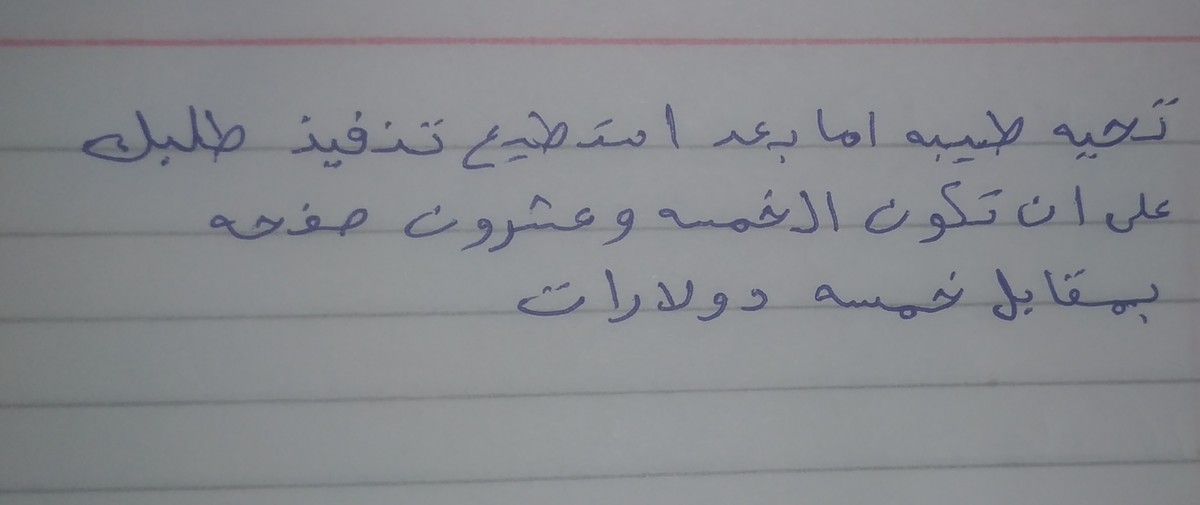 تحيه طيبه اما بعد استطيع تنفيذ طلبك
على ان تكون الخمسه وعشرون صفحه
بمقابل خمسه دولارات